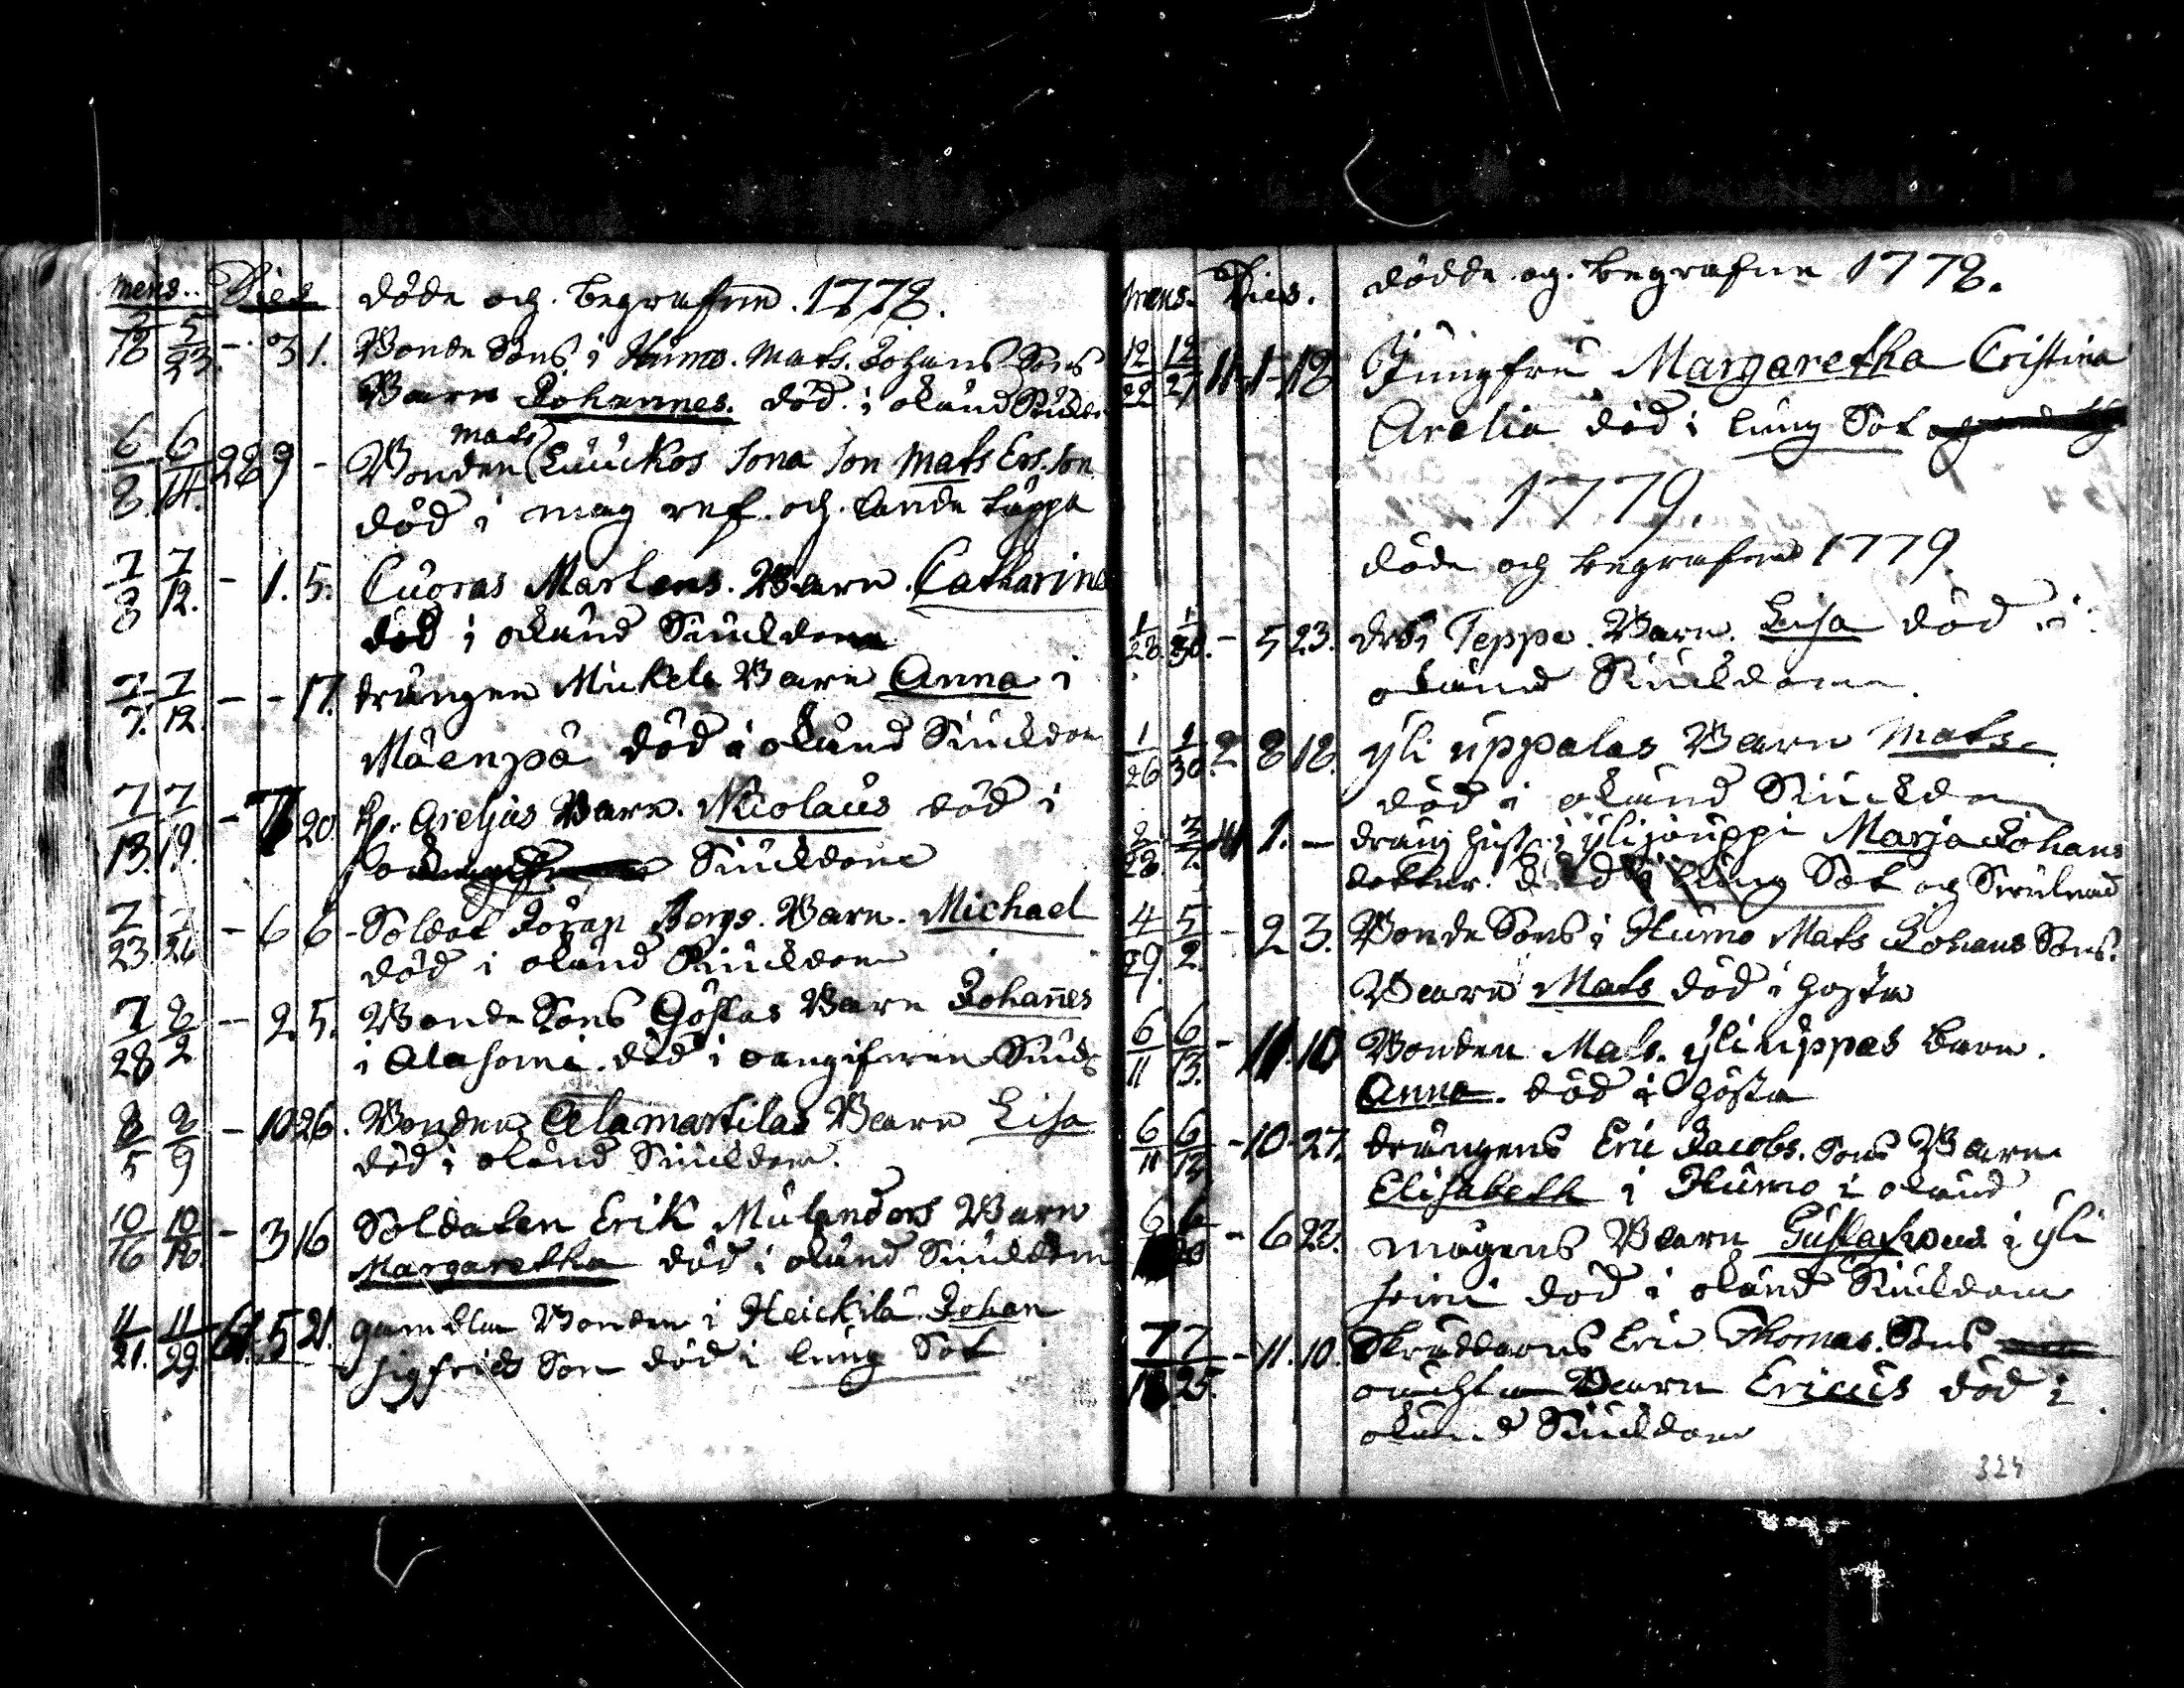 mens. Dies döde och begrafne. 1778.
5/18 5/23 - 3 1. Bonde Sons i Humo. Mats. Johans Sons
Barn Johannes. död i okänd Siukdo
mats
6/8. 6/14. 28 9 - Bonden Luuckos Sona Son Mats Ers. son
död i mag ref. och anda täppa
7/8 7/12. - 1. 5. Cuoras Martens. Barn. Catharina
död i okänd Siukdom
7/7. 7/12. - - 17. drängen Mickels Barn Anna i
Mäenpä död i okänd Siukdom
7/13. 7/19. - 7 20 H. Areljus Barn. Nicolaus död i
Siukdom
7/23. 7/26 - 6 6 Soldat Jöran Bergs. Barn. Michael
död i okänd Siukdom
7/28 8/2 - 2. 5. Bonde Sons Göstas Barn Johannes
i Alasomi. död i oangifwen Siuk
8/5 8/9 - 10 26. Bonden Alamartilas Barn Lisa
död i okänd Siukdom.
10/16 10/18. - 3 16 Soldaten Erik Mulenders Barn
Margaretha död i okänd Siukdom
11/21. 11/29 61. 5 21. gamla Bonden i Heickilä Johan
Sigfrids Son död i lung Sot
mens. Dies. dödde och begrafne 1778.
12/22 12/27 11 - 1 - 18 Jungfru Margaretha Cristina
Arelia död i lung Sot
1779.
döde och begrafne 1779
1/28. 1/30. - 5 23. Teppo. Barn. Lisa död i
okänd Siukdom.
1/26 1/30. 2 8 18. yli uppalas Barn Mats.
död i okänd Siukdom
2/23. 3/7. 1. - dräng hust. i ylijouppi Marja Johans
dotter. död i lung Sot och
4/29. 5/2. - 2 3. Bonde Sons i Humo Mats Johans Sons.
Barn Mats död i hosta
6/11 6/13. - 11. 10 Bonden Mats. yliuppas barn.
Anna. död i hosta
6/11 6/13 - 10 - 27. drängens Eric Jacobs. Sons Barn
Elisabeth i Humo i okänd
6/ 6/20 - 6 28. mågens Barn Gustawus i yli
död i okänd Siukdom
7/18 7/25. - 11. 10. Skräddarns Eric Thomas. Sons
Barn Ericus död i
okänd Siukdom
324